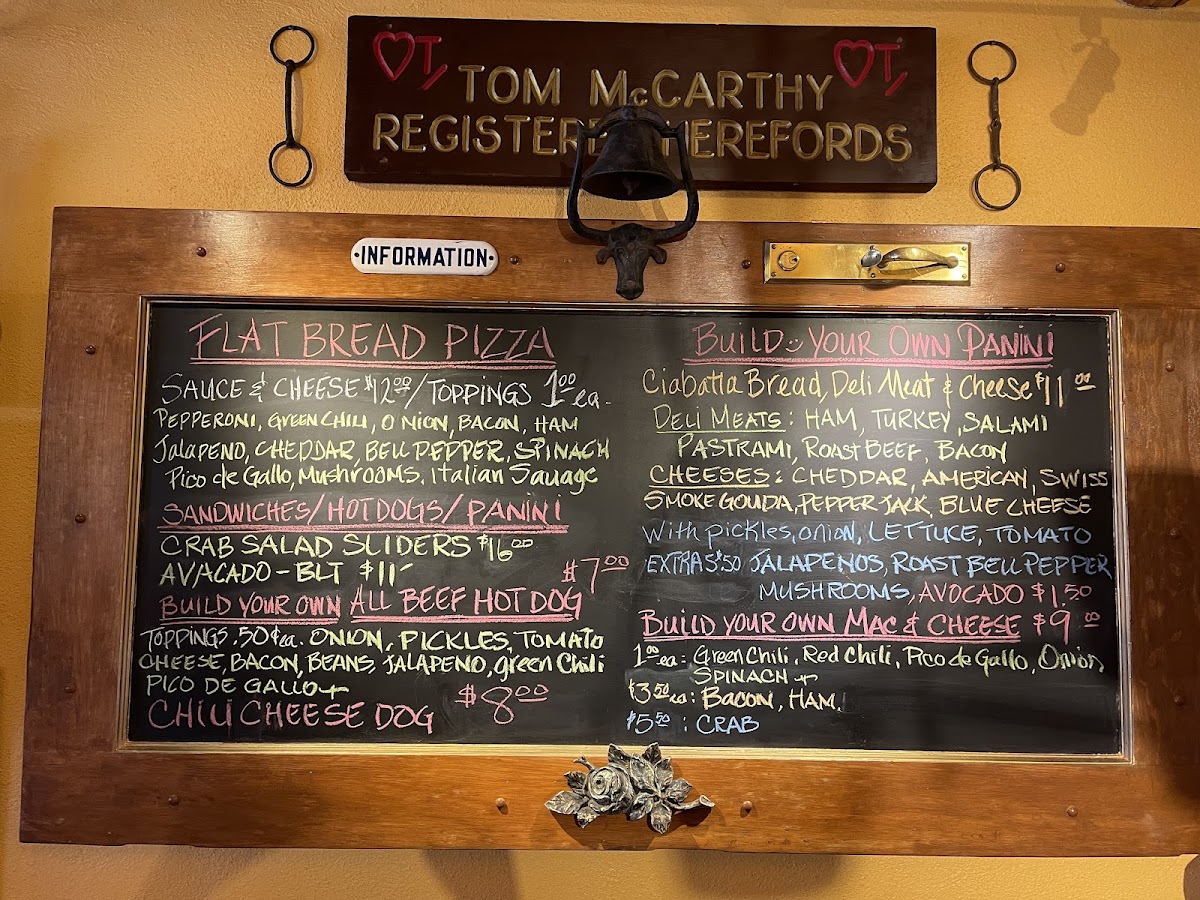 ♡T, ♡T,
TOM McCARTHY
REGISTERE HEREFORDS
·INFORMATION·
FLAT BREAD PIZZA
SAUCE & CHEESE $12.00/TOPPINGS 1.00 ea.
PEPPERONI, GREEN CHILI, ONION, BACON, HAM
JalapENO, CHEDDAR, BELL PEPPER, SPINACH
Pico de Gallo, Mushrooms, Italian Sauage
SANDWICHES/HOTDOGS/PANINI
CRAB SALAD SLIDERS $16.00
AVACADO-BLT $11-
$7.00
BUILD YOUR OWN ALL BEEF HOT DOG
TOPPINGS .50¢ea. ONION, PICKLES, TOMATO
CHEESE, BACON, BEANS, JALAPENO, green Chili
PICO DE GALLO+
CHILI CHEESE DOG $8.00
BUILD YOUR OWN PANINI
Ciabatta Bread, Deli Meat & Cheese $11.00
DELI MEATS: HAM, TURKEY, SALAMI
PASTRAMI, ROAST BEEF, BACON
CHEESES: CHEDDAR, AMERICAN, SWISS
SMOKE GOUDA, PEPPER JACK, BLUE CHEESE
With pickles, onion, LETTUCE, TOMATO
EXTRAS $.50 JALAPENOS, ROAST BELL PEPPER
MUSHROOMS, AVOCADO $1.50
BUILD YOUR OWN MAC & CHEESE $9.00
1.00 ea: Green Chili, Red Chili, Pico de Gallo, Onion,
SPINACH +
$3.50 ea: BACON, HAM,
$5.50: CRAB